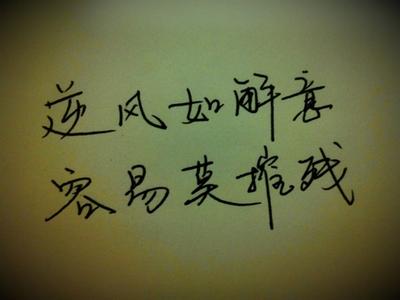 逆风如解意
容易莫摧残